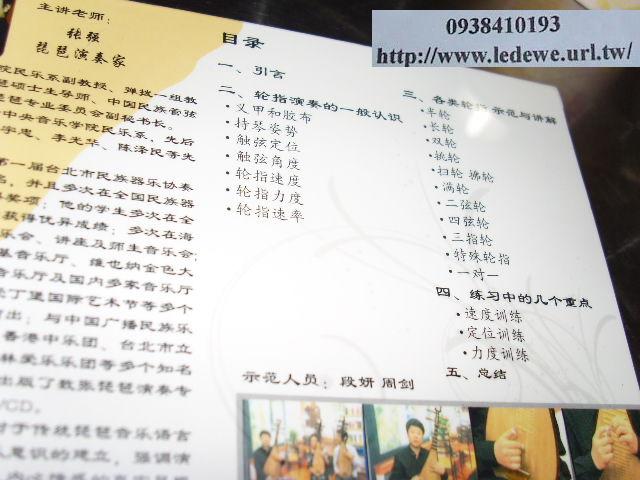 0938410193
http://www.ledewe.url.tw/
主讲老师：
张强
琵琶演奏家
院民乐系副教授、弹拨一组教
琶硕士生导师、中国民族管弦
琵琶专业委员会副秘书长。
中央音乐学院民乐系，先后
宇忠、李光华、陈泽民等先
第一届台北市民族器乐协奏
名，并且多次在全国民族器
奖项；他的学生多次在全
获得优异成绩；多次在海
乐会、讲座及师生音乐会；
基音乐厅、维也纳金色大
音乐厅及国内多家音乐厅
丁堡国际艺术节等多个
出；与中国广播民族乐
香港中乐团、台北市立
林爱乐乐团等多个知名
出版了数张琵琶演奏专
/CD。
对于传统琵琶音乐语言
意识的建立，强调演
目录
一、引言
二、轮指演奏的一般认识
·义甲和胶布
·持琴姿势
·触弦定位
·触弦角度
·轮指速度
·轮指力度
·轮指速率
三、各类轮指示范与讲解
·半轮
·长轮
·双轮
·挑轮
·扫轮 拂轮
·满轮
·二弦轮
·四弦轮
·三指轮
·特殊轮指
·一对一
四、练习中的几个重点
·速度训练
·定位训练
·力度训练
五、总结
示范人员：段妍 周剑